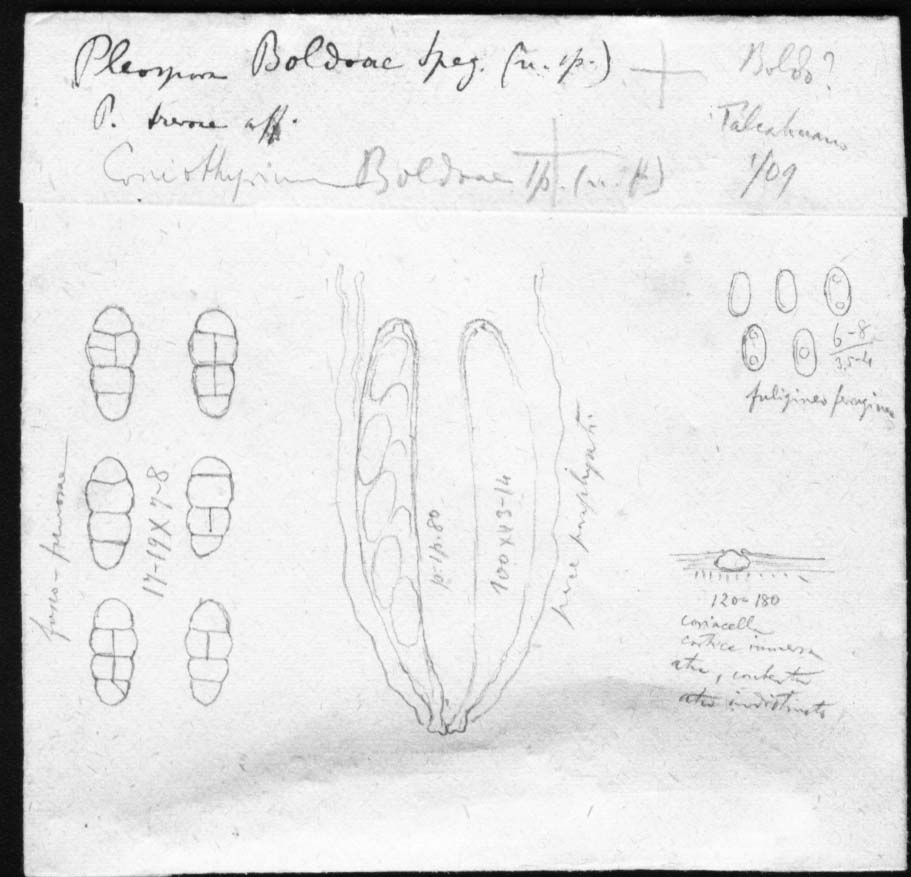 Pleospora Boldoae Speg. (n. sp.)
Boldo?
P. aff.
Talcahuano
Coniothyrium Boldoae Sp. (n. f.)
1/09
6-8
3,5-4
fuligineo ferruginea
17-19 X 7-8
p. sp. 80
100 X 13-14
paraphysati
120-180
coriacella
cortice immersa
atra, contextu
atro indistincto